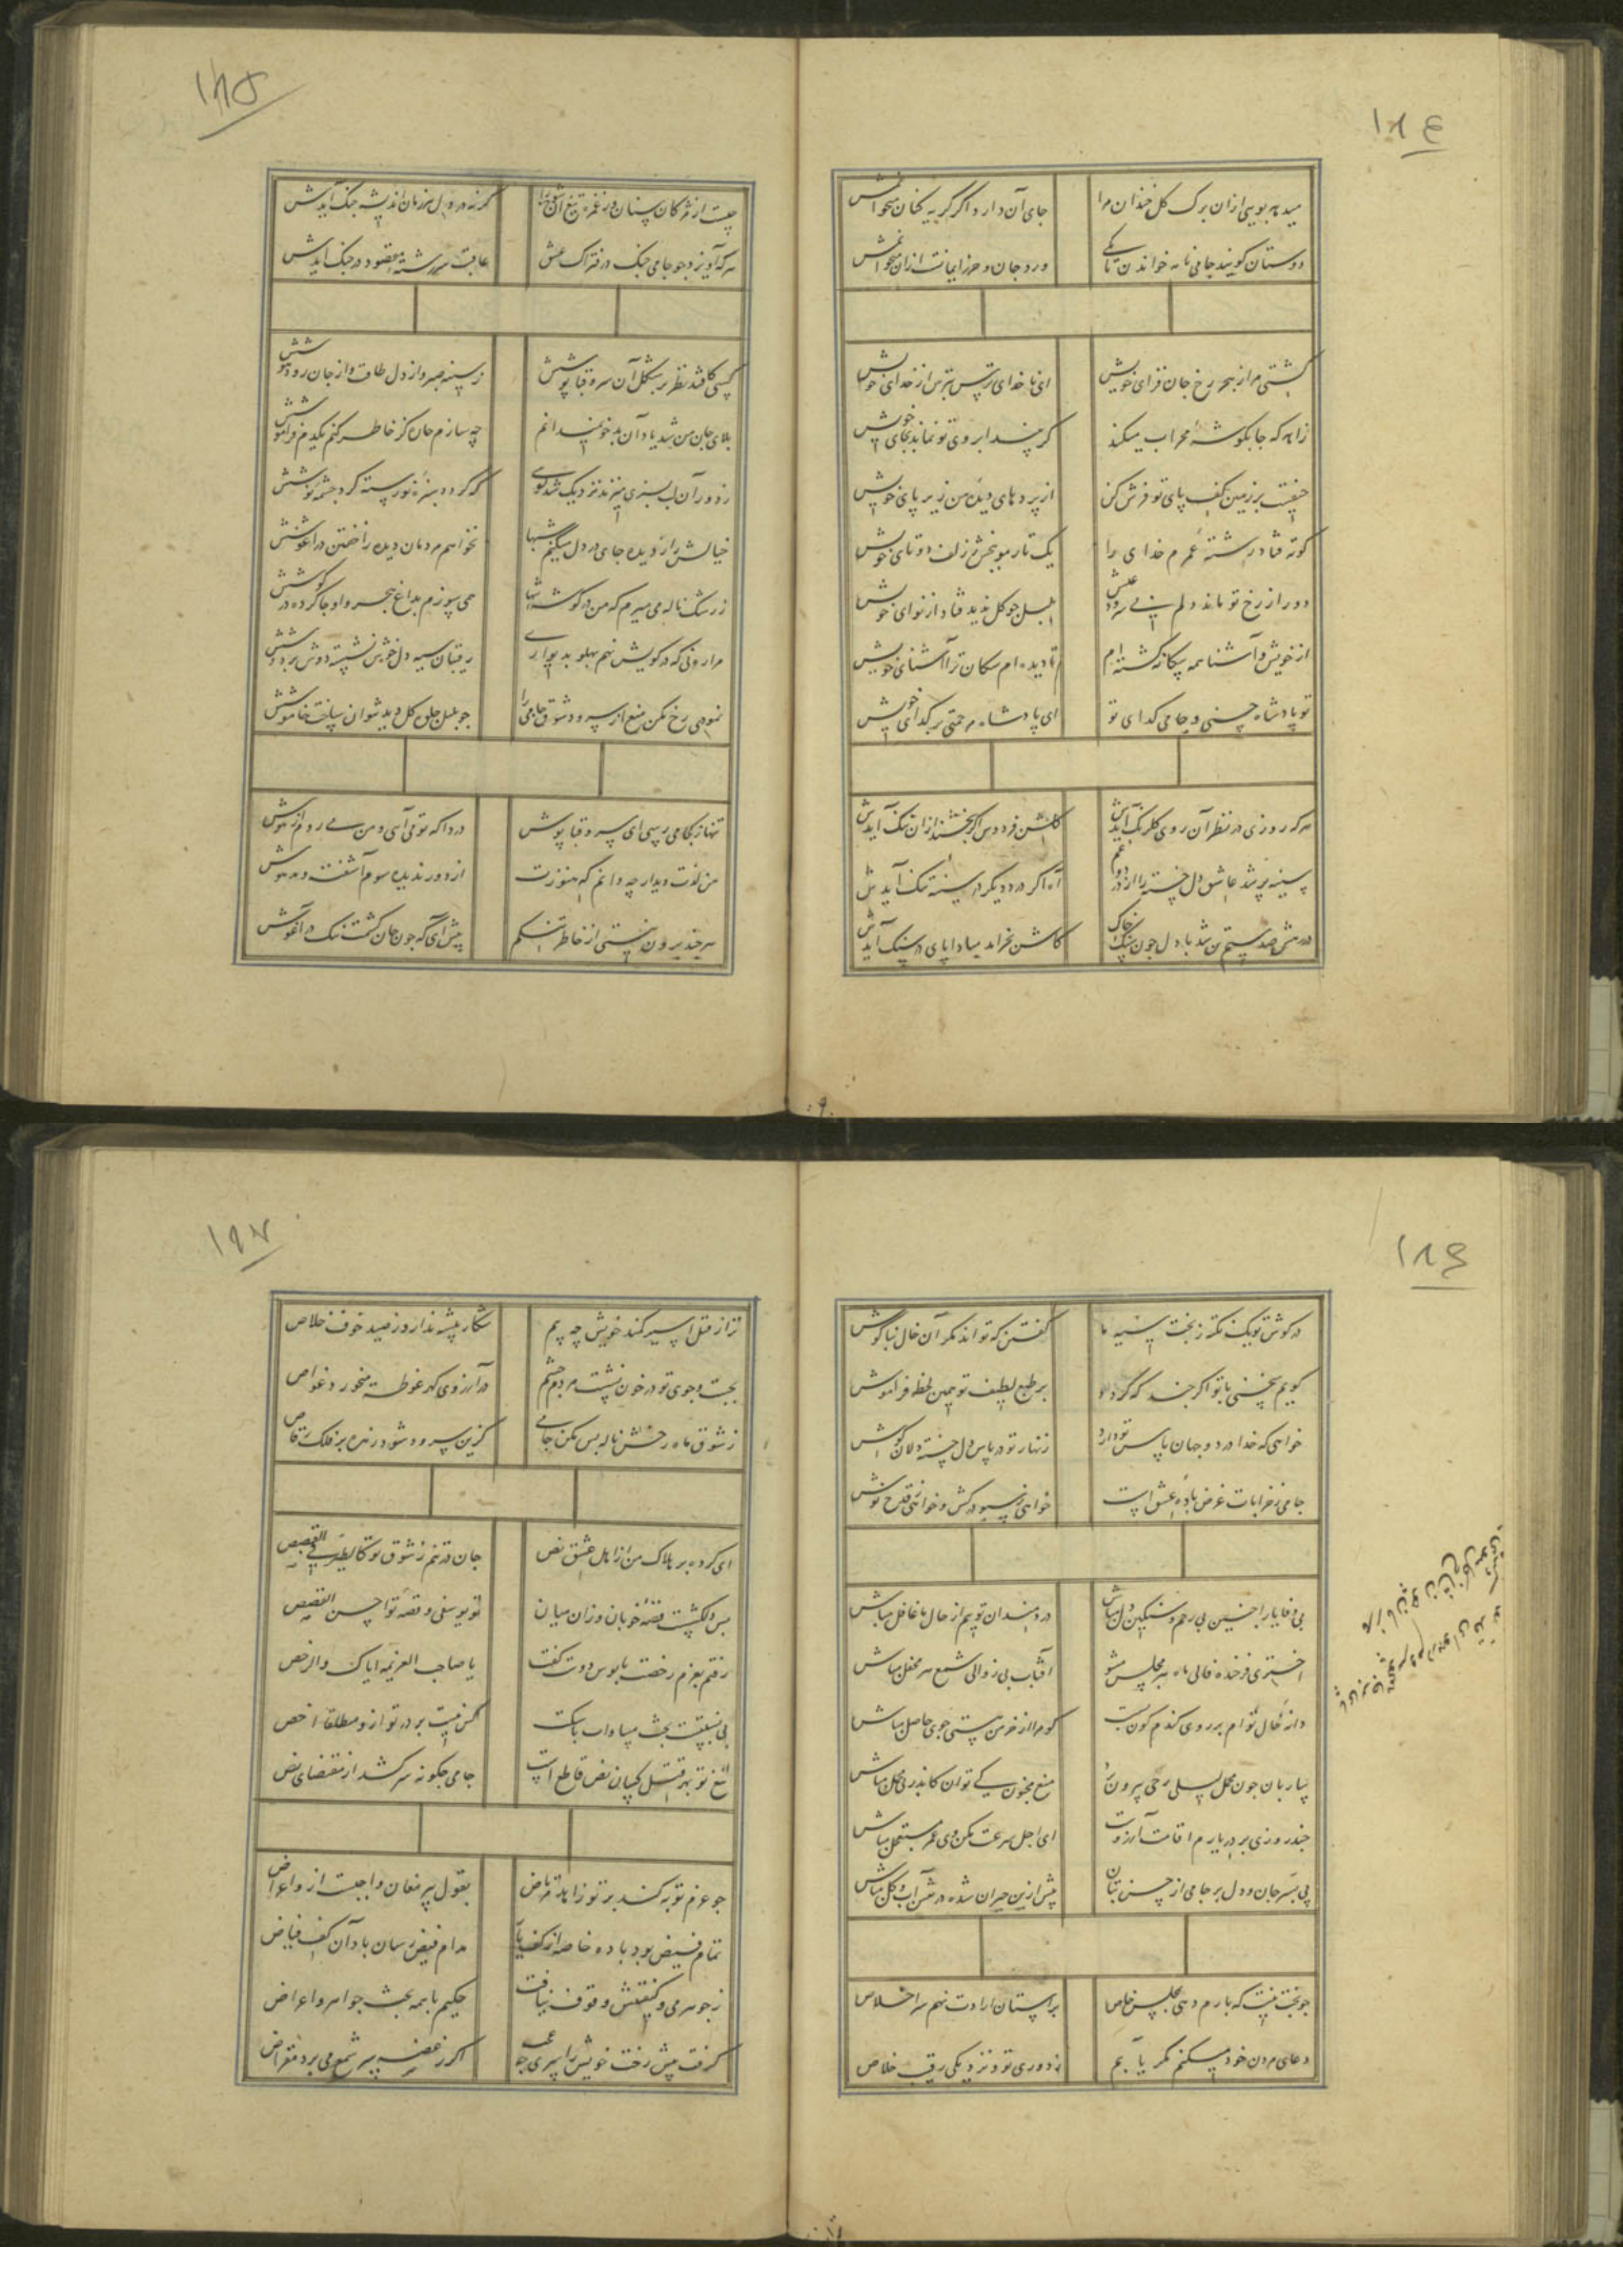 ١٨٤
میدهد بویی ازان برک کل خندان مرا
جای آن دارد اگر گریه کنان میخوانمش
دوستان کویند جامی نامه خواندن تا بکی
ورد جان و حرز ایمانست ازان میخوانمش
کشتی مرا ز هجر رخ جان فزای خویش
ای ناخدای ترس بترس از خدای خویش
زاهد که جا بکوشه محراب میکند
کر بیند ابروی تو نماند بجای خویش
حیفست بر زمین کف پای تو فرش کن
از پردهای دیده من زیر پای خویش
کوته فتاد رشته عمرم خدای را
یک تار مو ببخش ز زلف دوتای خویش
دور از رخ تو ماند دلم بی سرود عیش
بلبل جو کل ندید فتاد از نوای خویش
از خویش و آشنا همه بیکانه کشته ام
تا دیده ام سکان ترا آشنای خویش
تو پادشاه حسنی و جامی کدای تو
ای پادشاه مرحمتی بر کدای خویش
هر که روزی در نظر آن روی کلرنک آیدش
کلشن فردوس اگر بخشند ازان ننک آیدش
سینه پر شد عاشق دل خسته را از درد و غم
آه اگر درد دیگر در سینه تنک آیدش
در رهش صد ستم تن شد با دل جون سنک خاک
کاش نخرامد مبادا پای در سنک آیدش
١٨٥
چیست از مژکان سنان وز غمزه تیغ آن شوخ را
کرنه در دل هر زمان اندیشه جنک آیدش
هر که آویزد جو جامی جنک در فتراک عشق
عاقبت سررشته مقصود در جنک آیدش
کسی کافتد نظر بر شکل آن سرو قبا پوشش
ز سینه صبر و از دل طاقت و از جان رود هوشش
بلای جان من شد یاد آن بدخو نمیدانم
چه سازم جان کز خاطر کنم یکدم فراموشش
ز دور آن لب بسبزی میزند نزدیک شد کویی
که کردد سبزه نورسته کرد چشمه نوشش
خیالش را ز دیده جای در دل میکنم شبها
نخواهم مردمان دیده را خفتن در آغوشش
ز رشک ناله می میرم که من در کوشه تنها
همی سوزم بداغ هجر و او جا کرده در کوشش
مرا روزی که در کویش نهم پهلو بدیواری
رقیبان سیه دل خویش نشسته دوش بر دوشش
نمودی رخ مکن منع از سرود شوق جامی را
جو بلبل جلوه کل دید نتوان ساخت خاموشش
تنها ز کجا می رسی ای سرو قبا پوش
دردا که تو می آیی و من می روم از هوش
من لذت دیدار چه دانم که هنوزت
از دور ندیده شوم آشفته و مدهوش
هرچند برون نیستی از خاطر تنکم
پیش آی که جون جان کشمت تنک در آغوش
١٨٦
در کوش تو یک نکته ز بخت سیه ما
کفتن که تواند مکر آن خال بناکوش
کویم سخنی با تو اگرچند که کردد
بر طبع لطیف تو همین لحظه فراموش
خواهی که خدا در دو جهان پاس تو دارد
زنهار تو در پاس دل خسته دلان کوش
جامی ز خرابات غرض باده عشق است
خواهی ز سبو درکش و خواهی ز قدح نوش
بی وفا یارا جنین بی رحم و سنکین دل مباش
دردمندان توییم از حال ما غافل مباش
اختری فرخنده فالی ماه هر مجلس مشو
آفتاب بی زوالی شمع هر محفل مباش
دانه خال توام بر روی کندم کون بست
کو مرا از خرمن هستی جوی حاصل مباش
ساربان جون محمل لیلی ز حی بیرون برد
منع مجنون کی توان کاندر پی محمل مباش
جند روزی بر در یارم اقامت آرزوست
ای اجل سرعت مکن وی عمر مستعجل مباش
پی ببر جان و دل بر جامی از حسن بتان
بیش ازین حیران شده در نقش آب و کل مباش
جو بخت نیست که بارم دهی بمجلس خاص
بر آستان ارادت نهم سر اخلاص
دعای مردن خود میکنم مکر یابم
ز دوری تو و نزدیکی رقیب خلاص
١٨٧
ترا ز قتل اسیر کمند خویش چه بیم
شکار پیشه ندارد ز صید خوف خلاص
بجست و جوی تو در خون نشست مردم چشم
در آرزوی کهر غوطه میخورد غواص
ز شوق ماه رخش ناله بس مکن جامی
کزین سرود شود زهره بر فلک رقاص
ای کرده بر هلاک من از اهل عشق نص
جان در تنم ز شوق تو کالطیر فی القفص
بس دلکشست قصه خوبان وزان میان
تو یوسفی و قصه تو احسن القصص
رفتم بعزم رخصت پابوس دوست کفت
یا صاحب العزیمه ایاک والرخص
بی نسبتست بحث مساوات با سکت
کس نیست بر در تو ازو مطلقا اخص
تیغ تو بهر قتل کسان نص قاطع است
جامی جکونه سر کشد از مقتضای نص
جو عزم توبه کند بر تو زاهد مرتاض
بقول پیر مغان واجبست ازو اعراض
تمام فیض بود باده خاصه از کف یار
مدام فیض رسان باد آن کف فیاض
ز جوهر می و کیفیتش وقوف نیافت
حکیم با همه بحث جواهر و اعراض
کرفت پیش رخت خویش را بپیری
اکر ز غصه سر شمع می برد مقراض